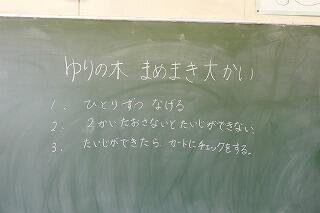 ゆりの木 まめまき大かい
1. ひとりずつ なげる
2. 2かいたおさないとたいじができない
3. たいじができたら カードにチェックをする。